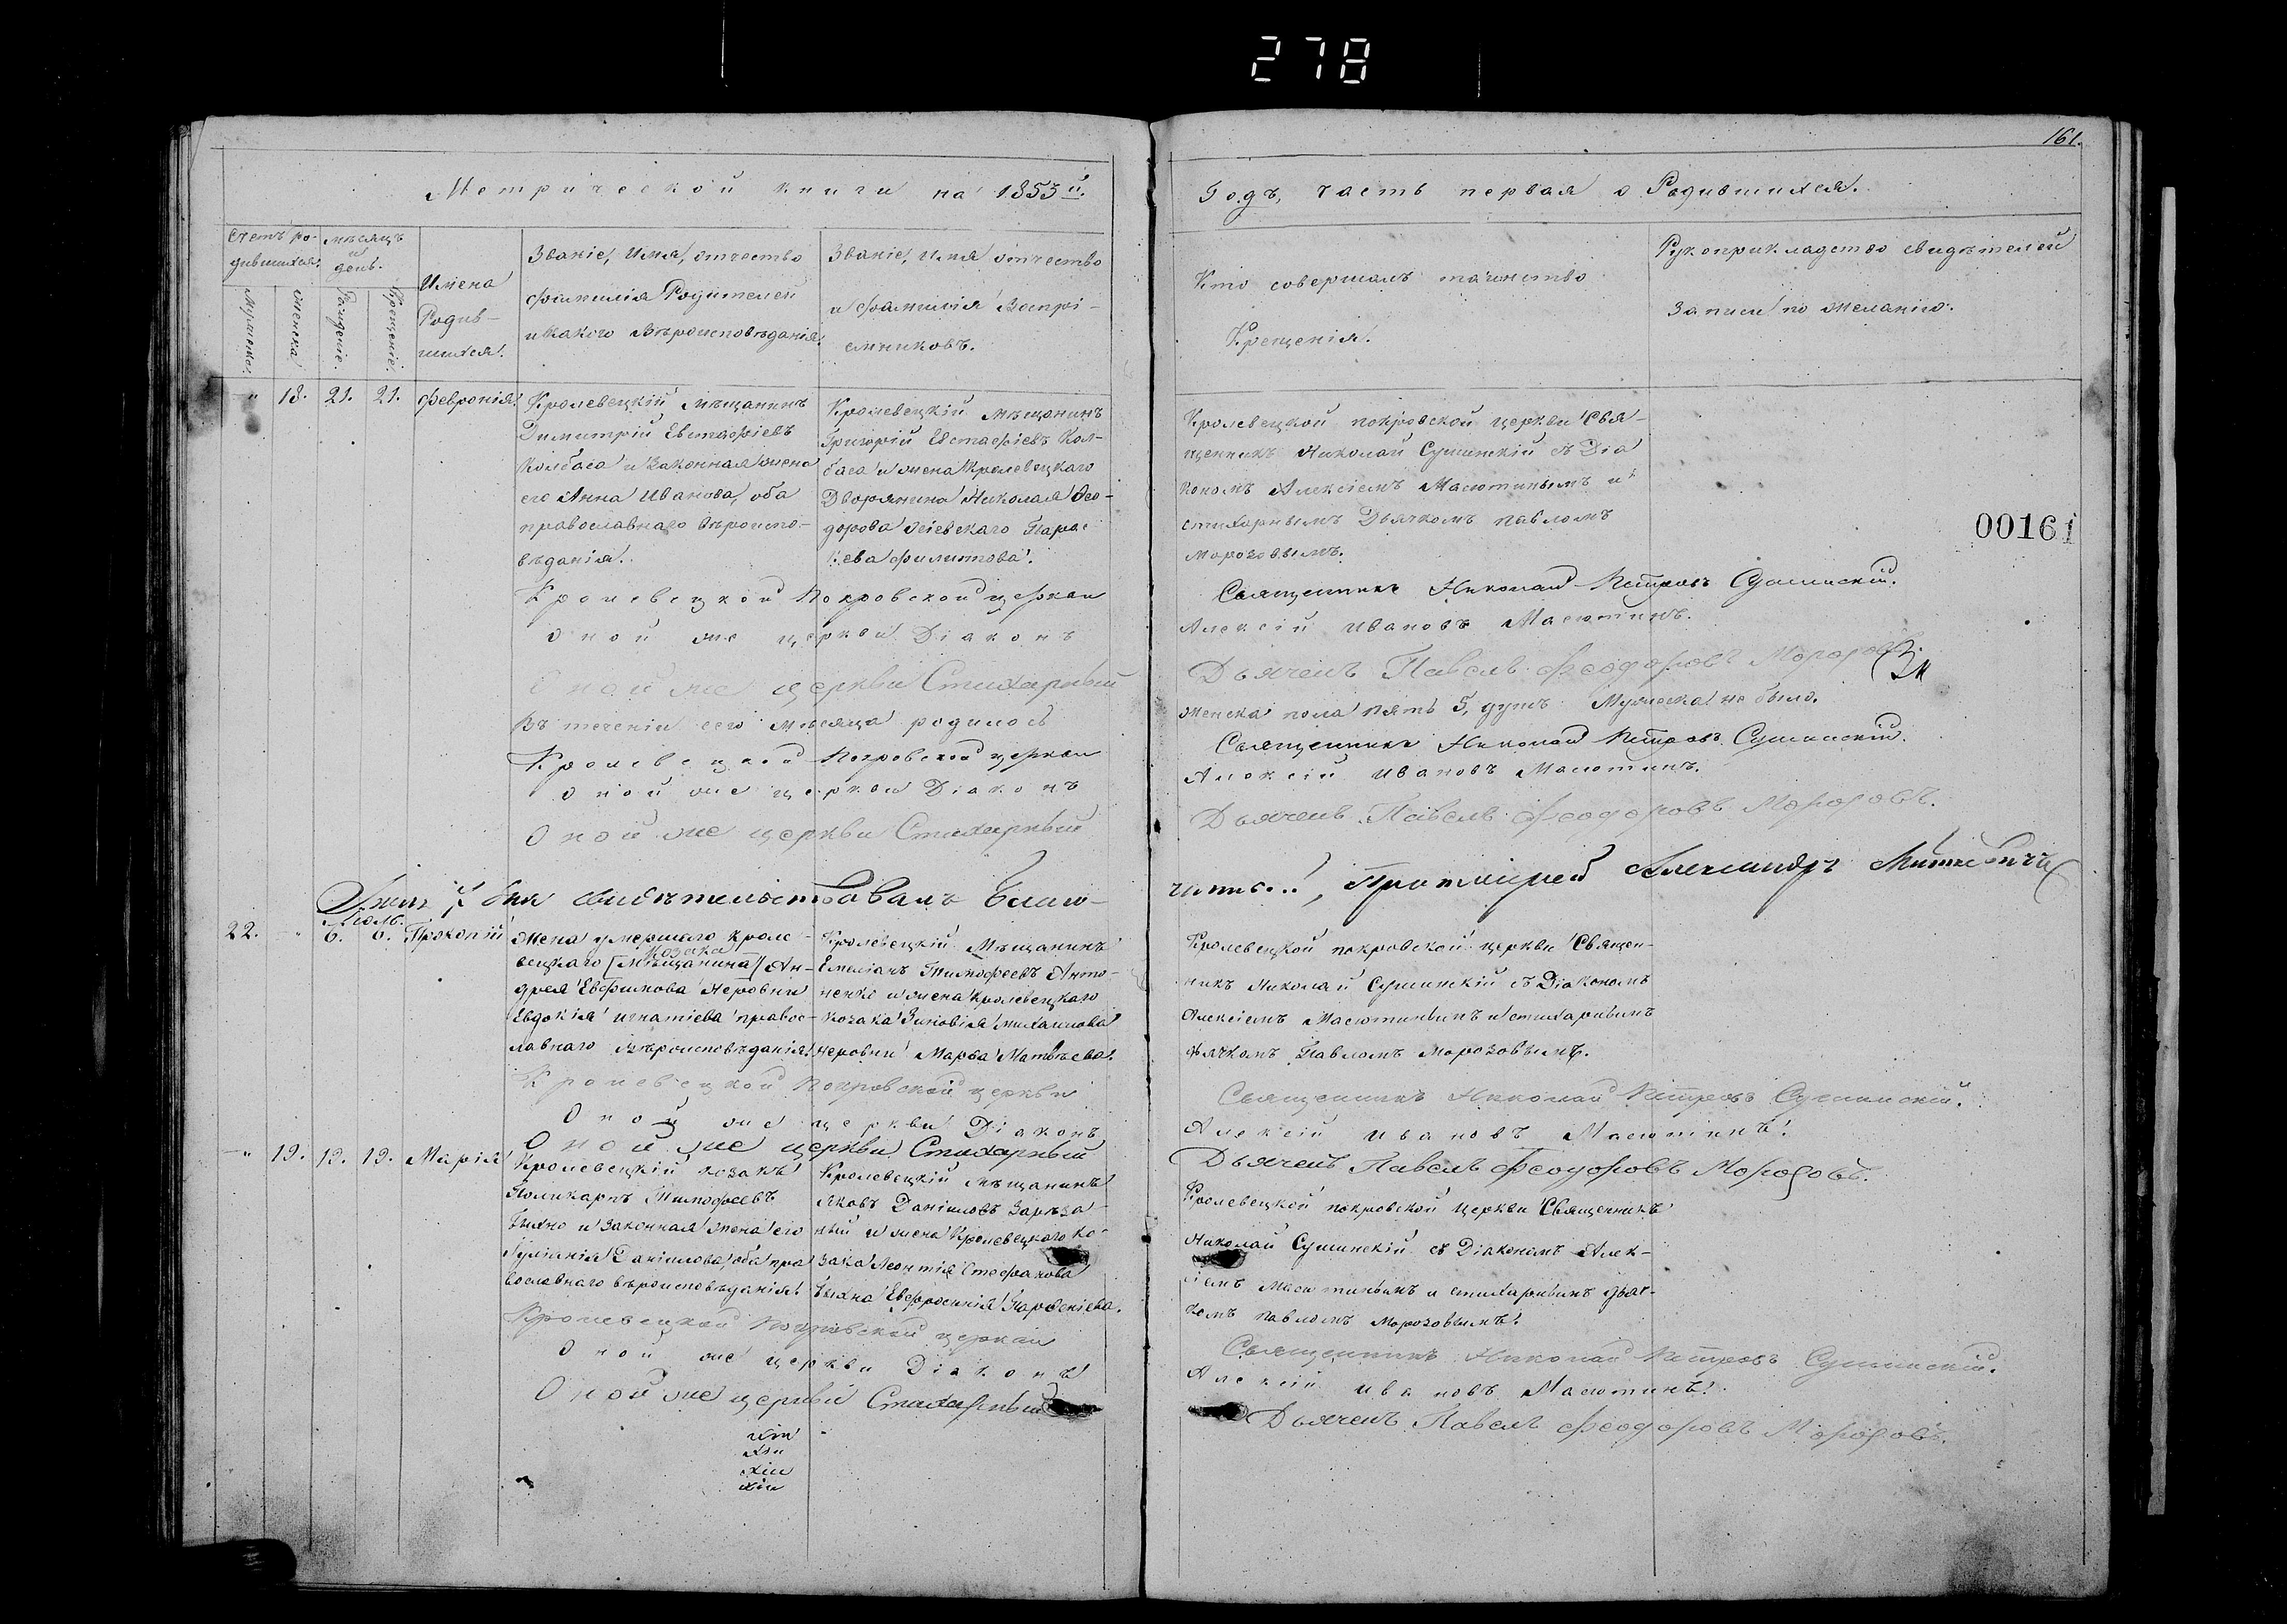 278
161.
Метрической книги на 1853й.
Годъ, часть первая о Родившихся.
Счетъ ро-
дившихся.
Мужеска.
женска.
мѣсяцъ
и
день.
Рожденіе.
Крещеніе.
Имена
Родив-
шихся.
Званіе, Имя, отчество
фамилія Родителей
и какого Вѣроисповѣданія.
Званіе, Имя отчество
и фамилія Воспрі-
емниковъ.
Кто совершалъ таинство
Крещенія.
Рукоприкладство свидѣтелей
записи по желанію.
" 18. 21. 21. Февронія.
Кролевецкій мѣщанинъ
Димитрій Евстафіевъ
Колбаса и законная жена
его Анна Иванова, оба
православнаго вѣроиспо-
вѣданія.
Кролевецкій мѣщанинъ
Григорій Евстафіевъ Кол-
баса и жена Кролевецкаго
Дворянина Николая Фео-
дорова Парас
кева Филиппова.
Кролевецкой покровской церкви Свя-
щенникъ Николай Сушинскій съ Діа
кономъ Алексіемъ Масютинымъ и
стихарнымъ Дьячкомъ павломъ
морозовымъ.
00161
Кролевецкой Покровской церкви
Священникъ Николай Петровъ Сушинскій.
оной же церкви Діаконъ
Алексій Ивановъ Масютинъ.
Оной же церкви Стихарный
Дьячекъ Павелъ Феодоровъ Морозовъ.
Въ теченіи сего мѣсяца родилось
женска пола пять 5, душъ Мужеска не было.
Кролевецкой Покровской церкви
Священникъ Николай Петровъ Сушинскій.
оной же церкви Діаконъ
Алексій Ивановъ Масютинъ.
Оной же церкви Стихарный
Дьячекъ Павелъ Феодоровъ Морозовъ.
свидѣтельствовалъ Благо-
чинный, Протоіерей Александръ
Іюль.
22. " 6. 6. Прокопій
жена умершаго Кроле-
козака
вецкаго [мѣщанина] Ан-
дрея Евфимова Неровни
Евдокія игнатіева правос-
лавнаго вѣроисповѣданія.
Кролевецкій Мѣщанинъ
Емеліанъ Тимофеевъ Анто-
ненко и жена кролевецкаго
козака Зиновія михаилова
неровни Марѳа Матвѣева.
Кролевецкой покровской церкви Священ-
никъ Николай Сушинскій съ Діакономъ
Алексіемъ Масютинымъ и стихарнымъ
дьячкомъ Павломъ Морозовымъ.
Кролевецкой Покровской церкви
Священникъ Николай Петровъ Сушинскій.
Оной же церкви Діаконъ
Алексій Ивановъ Масютинъ.
Оной же церкви Стихарный
Дьячекъ Павелъ Феодоровъ Морозовъ.
" 19. 19. 19. Марія
Кролевецкій козакъ
Поликарпъ Тимофеевъ
Быхно и законная жена его
Даніилова, оба пра
вославнаго вѣроисповѣданія.
Кролевецкій мѣщанинъ
Яковъ Даніиловъ Зарѣза-
ный и жена Кролевецкаго ко-
зака Леонтія Стефанова
Быхна Евфросинія Парфеніева.
Кролевецкой покровской церкви Священникъ
Николай Сушинскій съ Діакономъ Алек-
сіемъ Масютинымъ и стихарнымъ дьяч-
комъ павломъ Морозовымъ.
Кролевецкой Покровской церкви
Священникъ Николай Петровъ Сушинскій.
Оной же церкви Діаконъ
Алексій Ивановъ Масютинъ.
Оной же церкви Стихарный
Дьячекъ Павелъ Феодоровъ Морозовъ.